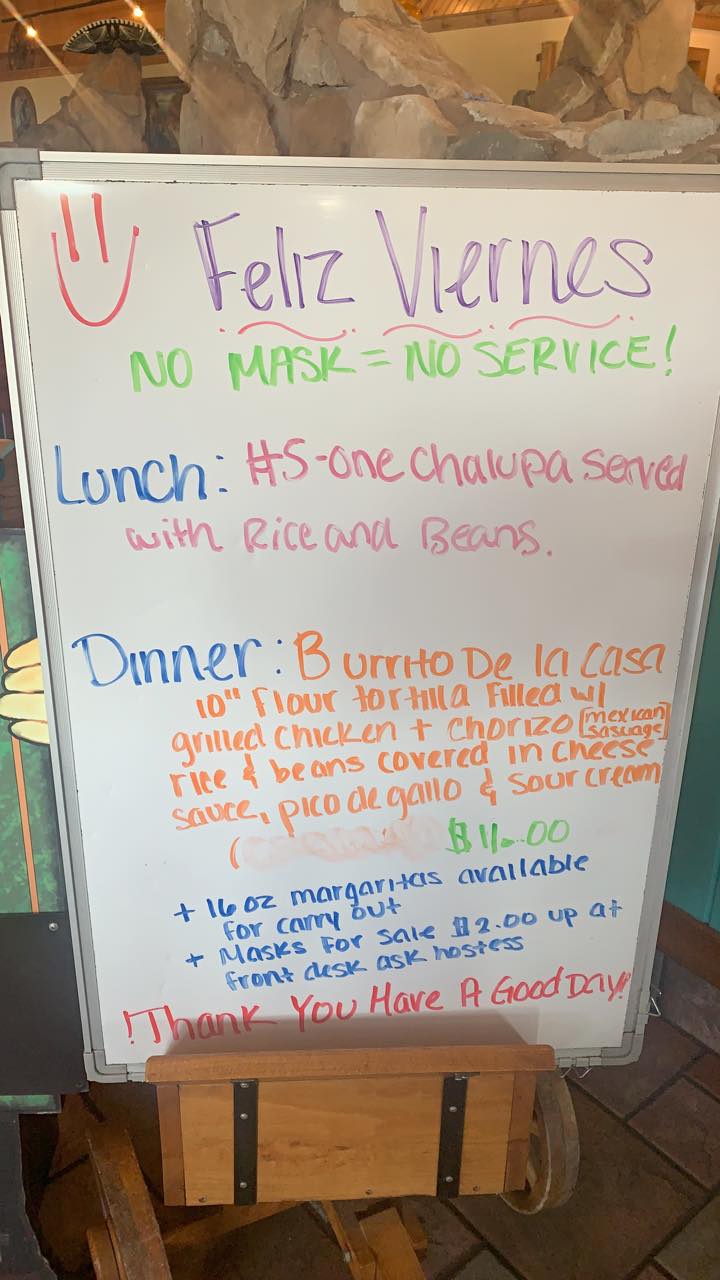 Feliz Viernes
NO MASK = NO SERVICE!
Lunch: #5-one Chalupa Served
with Rice and Beans.
Dinner: Burrito De la Casa
10" flour tortilla filled w/
grilled chicken + chorizo [mexican
sascage]
rice & beans covered in cheese
sauce, pico de gallo & sour cream
(
+ 16 oz margaritas available
for carry out
+ Masks for sale $2.00 up at
front desk ask hostess
!Thank You Have A Good Day!